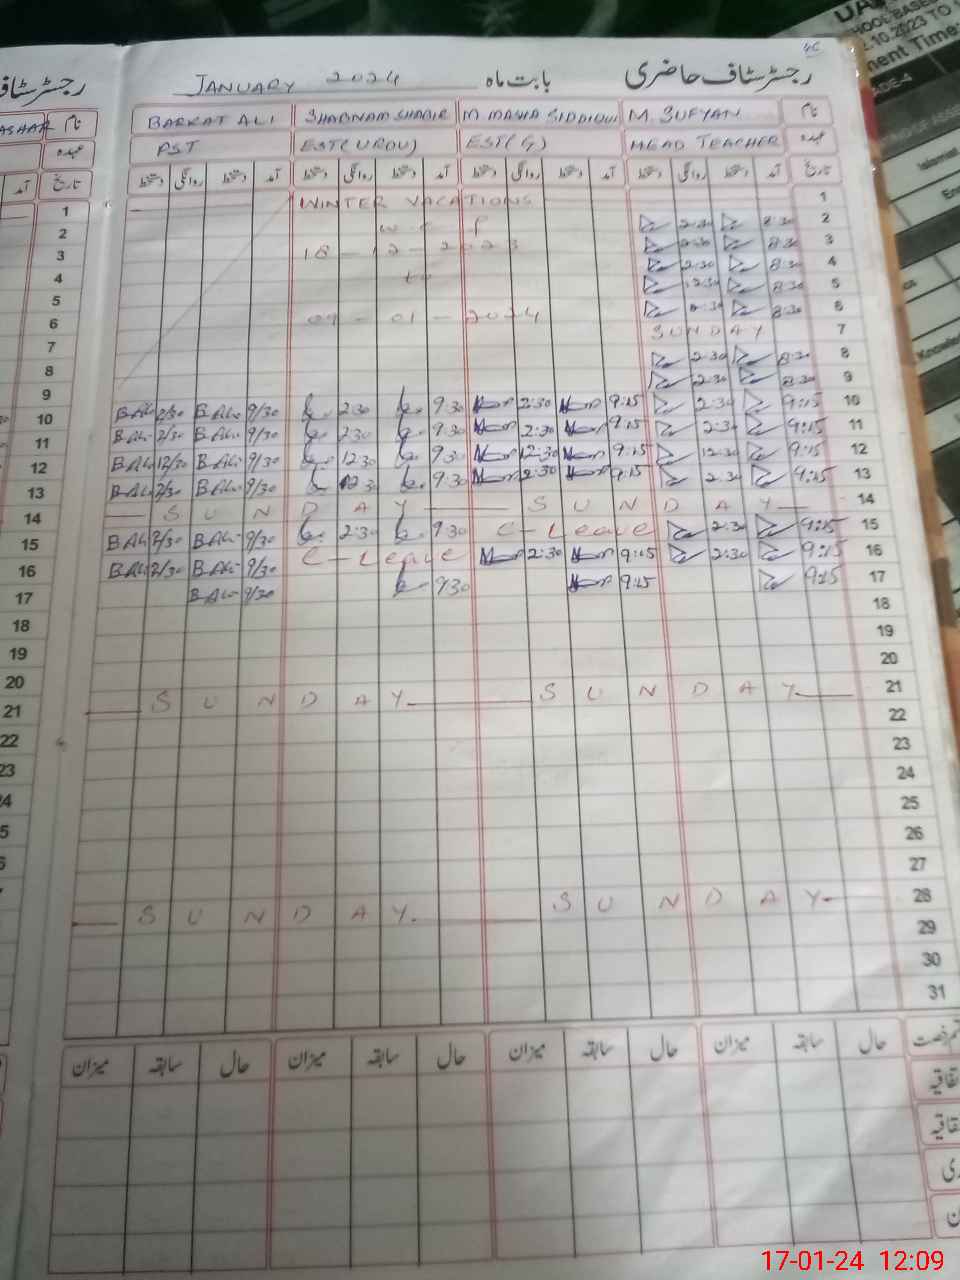 46
رجسٹر سٹاف حاضری بابت ماہ JANUARY 2024
نام M. SUFYAN M. MASHA SIDDIQUI SHABNAM SHABIR BARKAT ALI نام
عہدہ HEAD TEACHER EST(G) EST(URDU) PST عہدہ
تاریخ آمد دستخط روانگی دستخط آمد دستخط روانگی دستخط آمد دستخط روانگی دستخط آمد دستخط روانگی دستخط تاریخ آمد
1 WINTER VACATIONS 1
2 8:30 2:30 w.e.f 2
3 8:30 2:30 18-12-2023 3
4 8:30 2:30 to 4
5 8:30 12:30 5
6 8:30 2:30 09-01-2024 6
7 SUNDAY 7
8 8:30 2:30 8
9 8:30 2:30 9
10 9:15 2:30 9:15 2:30 9:30 2:30 9/30 B.Ali 2/30 B.Ali 10
11 9:15 2:30 9:15 2:30 9:30 2:30 9/30 B.Ali 2/30 B.Ali 11
12 9:15 12:30 9:15 12:30 9:30 12:30 9/30 B.Ali 12/30 B.Ali 12
13 9:15 2:30 9:15 2:30 9:30 2:30 9/30 B.Ali 2/30 B.Ali 13
14 SUNDAY SUNDAY 14
15 9:15 2:30 C-Leave 9:30 2:30 9/30 B.Ali 2/30 B.Ali 15
16 9:15 2:30 9:15 2:30 C-Leave 9/30 B.Ali 2/30 B.Ali 16
17 9:15 9:15 9:30 9/30 B.Ali 17
18 18
19 19
20 20
21 SUNDAY SUNDAY 21
22 22
23 23
24
25
26
27
28 SUNDAY SUNDAY
29
30
31
حال سابقہ میزان حال سابقہ میزان حال سابقہ میزان حال سابقہ میزان
17-01-24 12:09